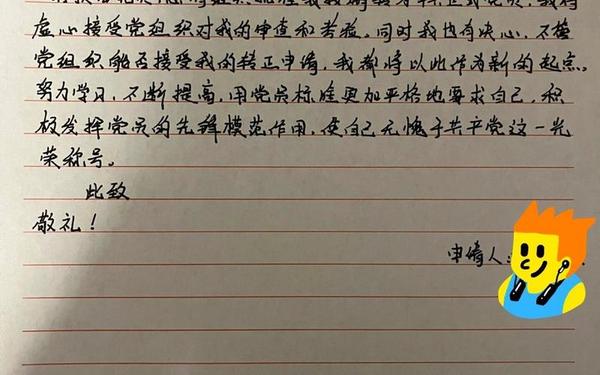 虚心接受党组织对我的审查和考验。同时我也有决心，不管
党组织能否接受我的转正申请，我都将以此作为新的起点。
努力学习，不断提高，用党员标准更加严格地要求自己，积
极发挥党员的先锋模范作用，使自己无愧于共产党这一光
荣称号。
此致
敬礼！
申请人：